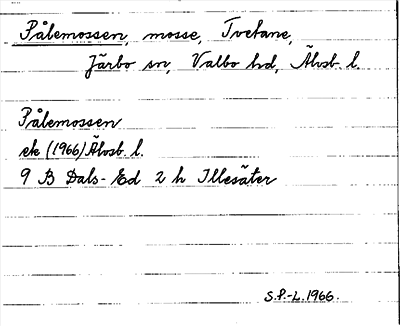 Pålemossen, mosse, Tvetane,
Järbo sn, Valbo hd, Älvsb. l.
Pålemossen
ek (1966) Älvsb. l.
9 B Dals-Ed 2 h Illesäter
S.P.-L. 1966.